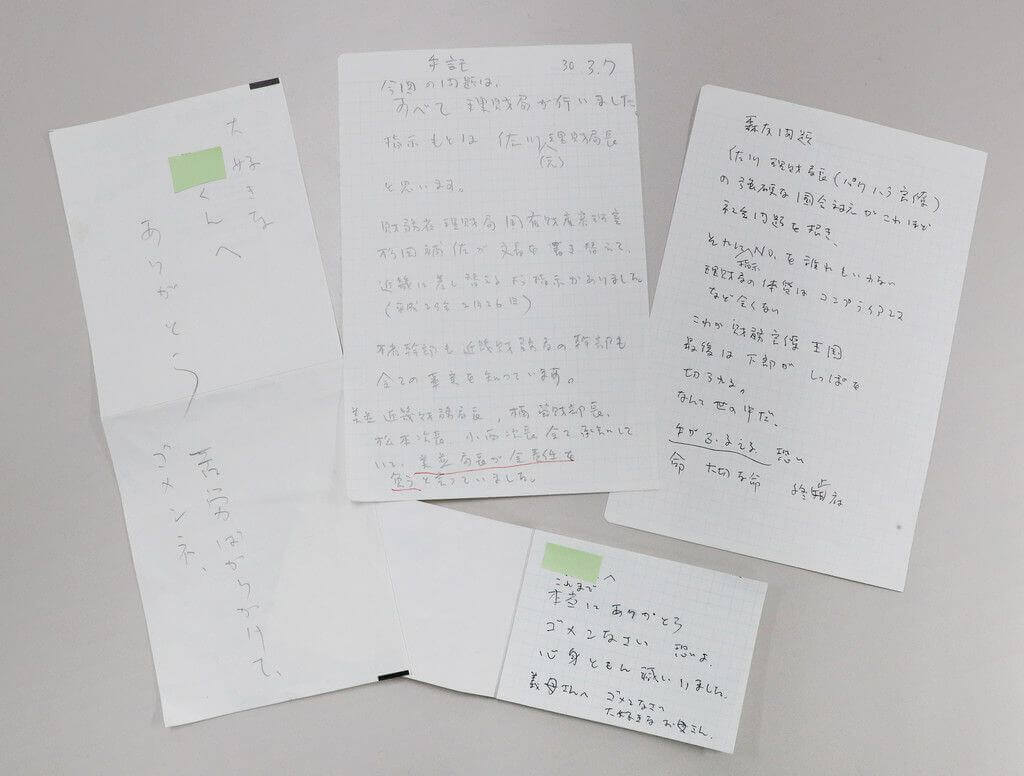 大好きな
くんへ
ありがとう
苦労ばかりかけて、
ゴメンネ、
手記 30 3.7
今回の問題は、
すべて 理財局が行いました
指示もとは 佐川理財局長
(元)
と思います。
財務省理財局 国有財産審理室
杉田補佐が文書を書き替えて、
近畿に差し替えるよう指示がありました
(平成29年2月26日)
本省幹部も近畿財務局の幹部も
全ての事実を知っています。
美並近畿財務局長、楠管財部長、
松本次長、小西次長全て承知して
いて、美並局長が全責任を
負うと言っていました。
森友問題
佐川理財局長(パワハラ官僚)
の強硬な国会対応がこれほど
社会問題を招き、
それにNO.を誰れもいわない
指示
理財局の体質はコンプライアンス
など全くない
これが財務官僚王国
最後は下部がしっぽを
切られる。
なんて世の中だ。
手がふるえる 恐い
命 大切な命 終止
へ
これまで
本当にありがとう
ゴメンなさい 恐いよ、
心身ともに いりました。
義母さんへ ゴメンなさい
大好きなお母さん。